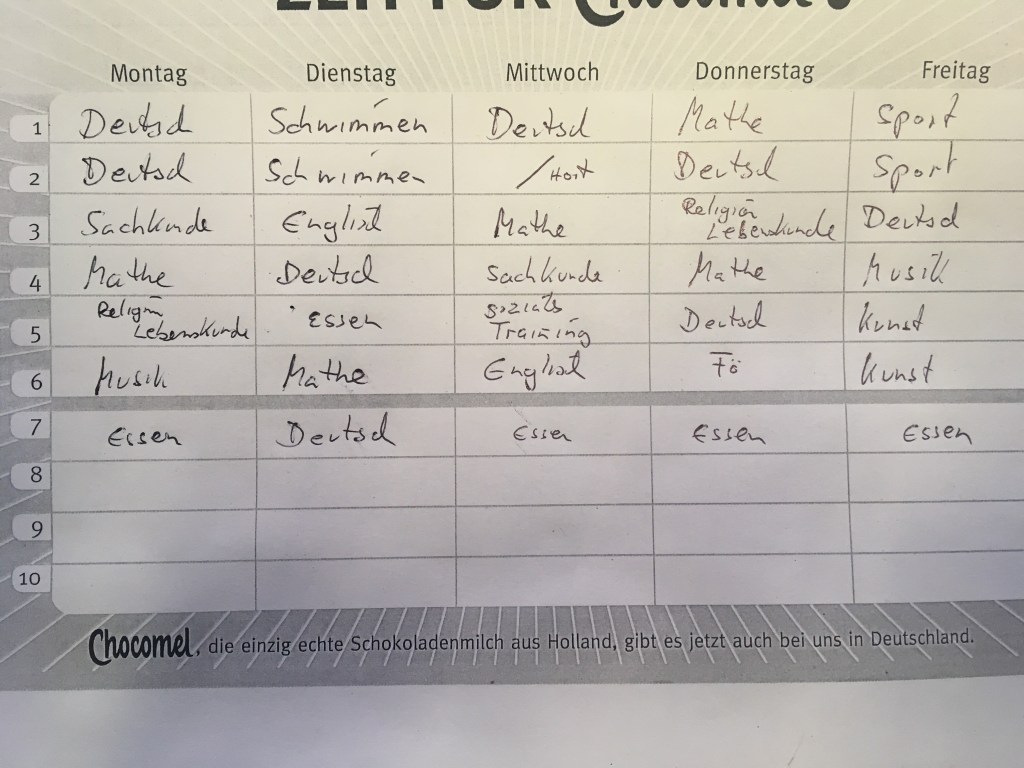 ZEIT FÜR Chocomel
Montag Dienstag Mittwoch Donnerstag Freitag
1 Deutsch Schwimmen Deutsch Mathe Sport
2 Deutsch Schwimmen / Hort Deutsch Sport
3 Sachkunde Englisch Mathe Religion Lebenskunde Deutsch
4 Mathe Deutsch Sachkunde Mathe Musik
5 Religion Lebenskunde Essen soziales Training Deutsch Kunst
6 Musik Mathe Englisch Fö Kunst
7 Essen Deutsch Essen Essen Essen
8
9
10
Chocomel, die einzig echte Schokoladenmilch aus Holland, gibt es jetzt auch bei uns in Deutschland.